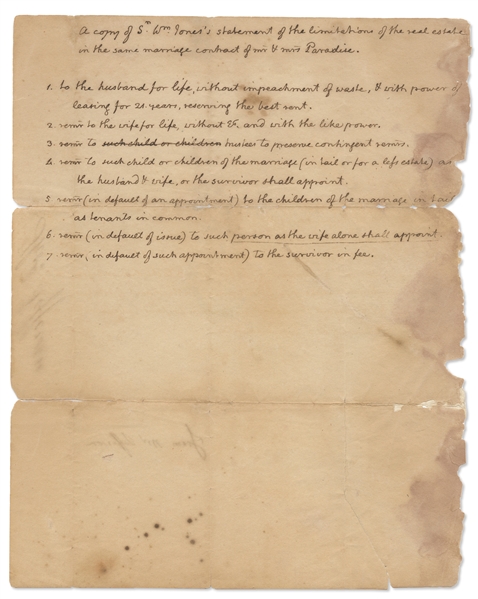 A copy of Sr. Wm. Jones's statement of the limitations of the real estate
in the same marriage contract of mr & mrs Paradise.
1. to the husband for life, without impeachment of waste, & with power of
leasing for 21 years, reserving the best rent.
2. remr to the wife for life, without &c. and with the like power.
3. remr to such child or children trustees to preserve contingent remrs.
4. remr to such child or children of the marriage (in tail or for a less estate) as
the husband & wife, or the survivor shall appoint.
5. remr (in default of an appointment) to the children of the marriage in tail
as tenants in common.
6. remr (in default of issue) to such person as the wife alone shall appoint.
7. remr (in default of such appointment) to the survivor in fee.